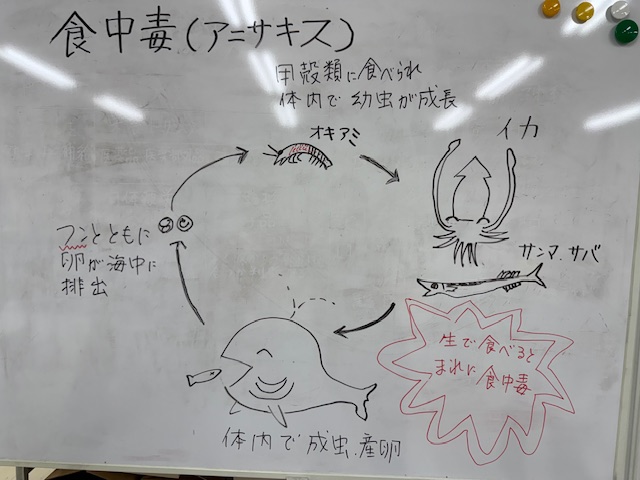 食中毒(アニサキス)
甲殻類に食べられ
体内で幼虫が成長
オキアミ
イカ
サンマ.サバ
フンとともに
卵が海中に
排出
生で食べると
まれに食中毒
体内で成虫.産卵